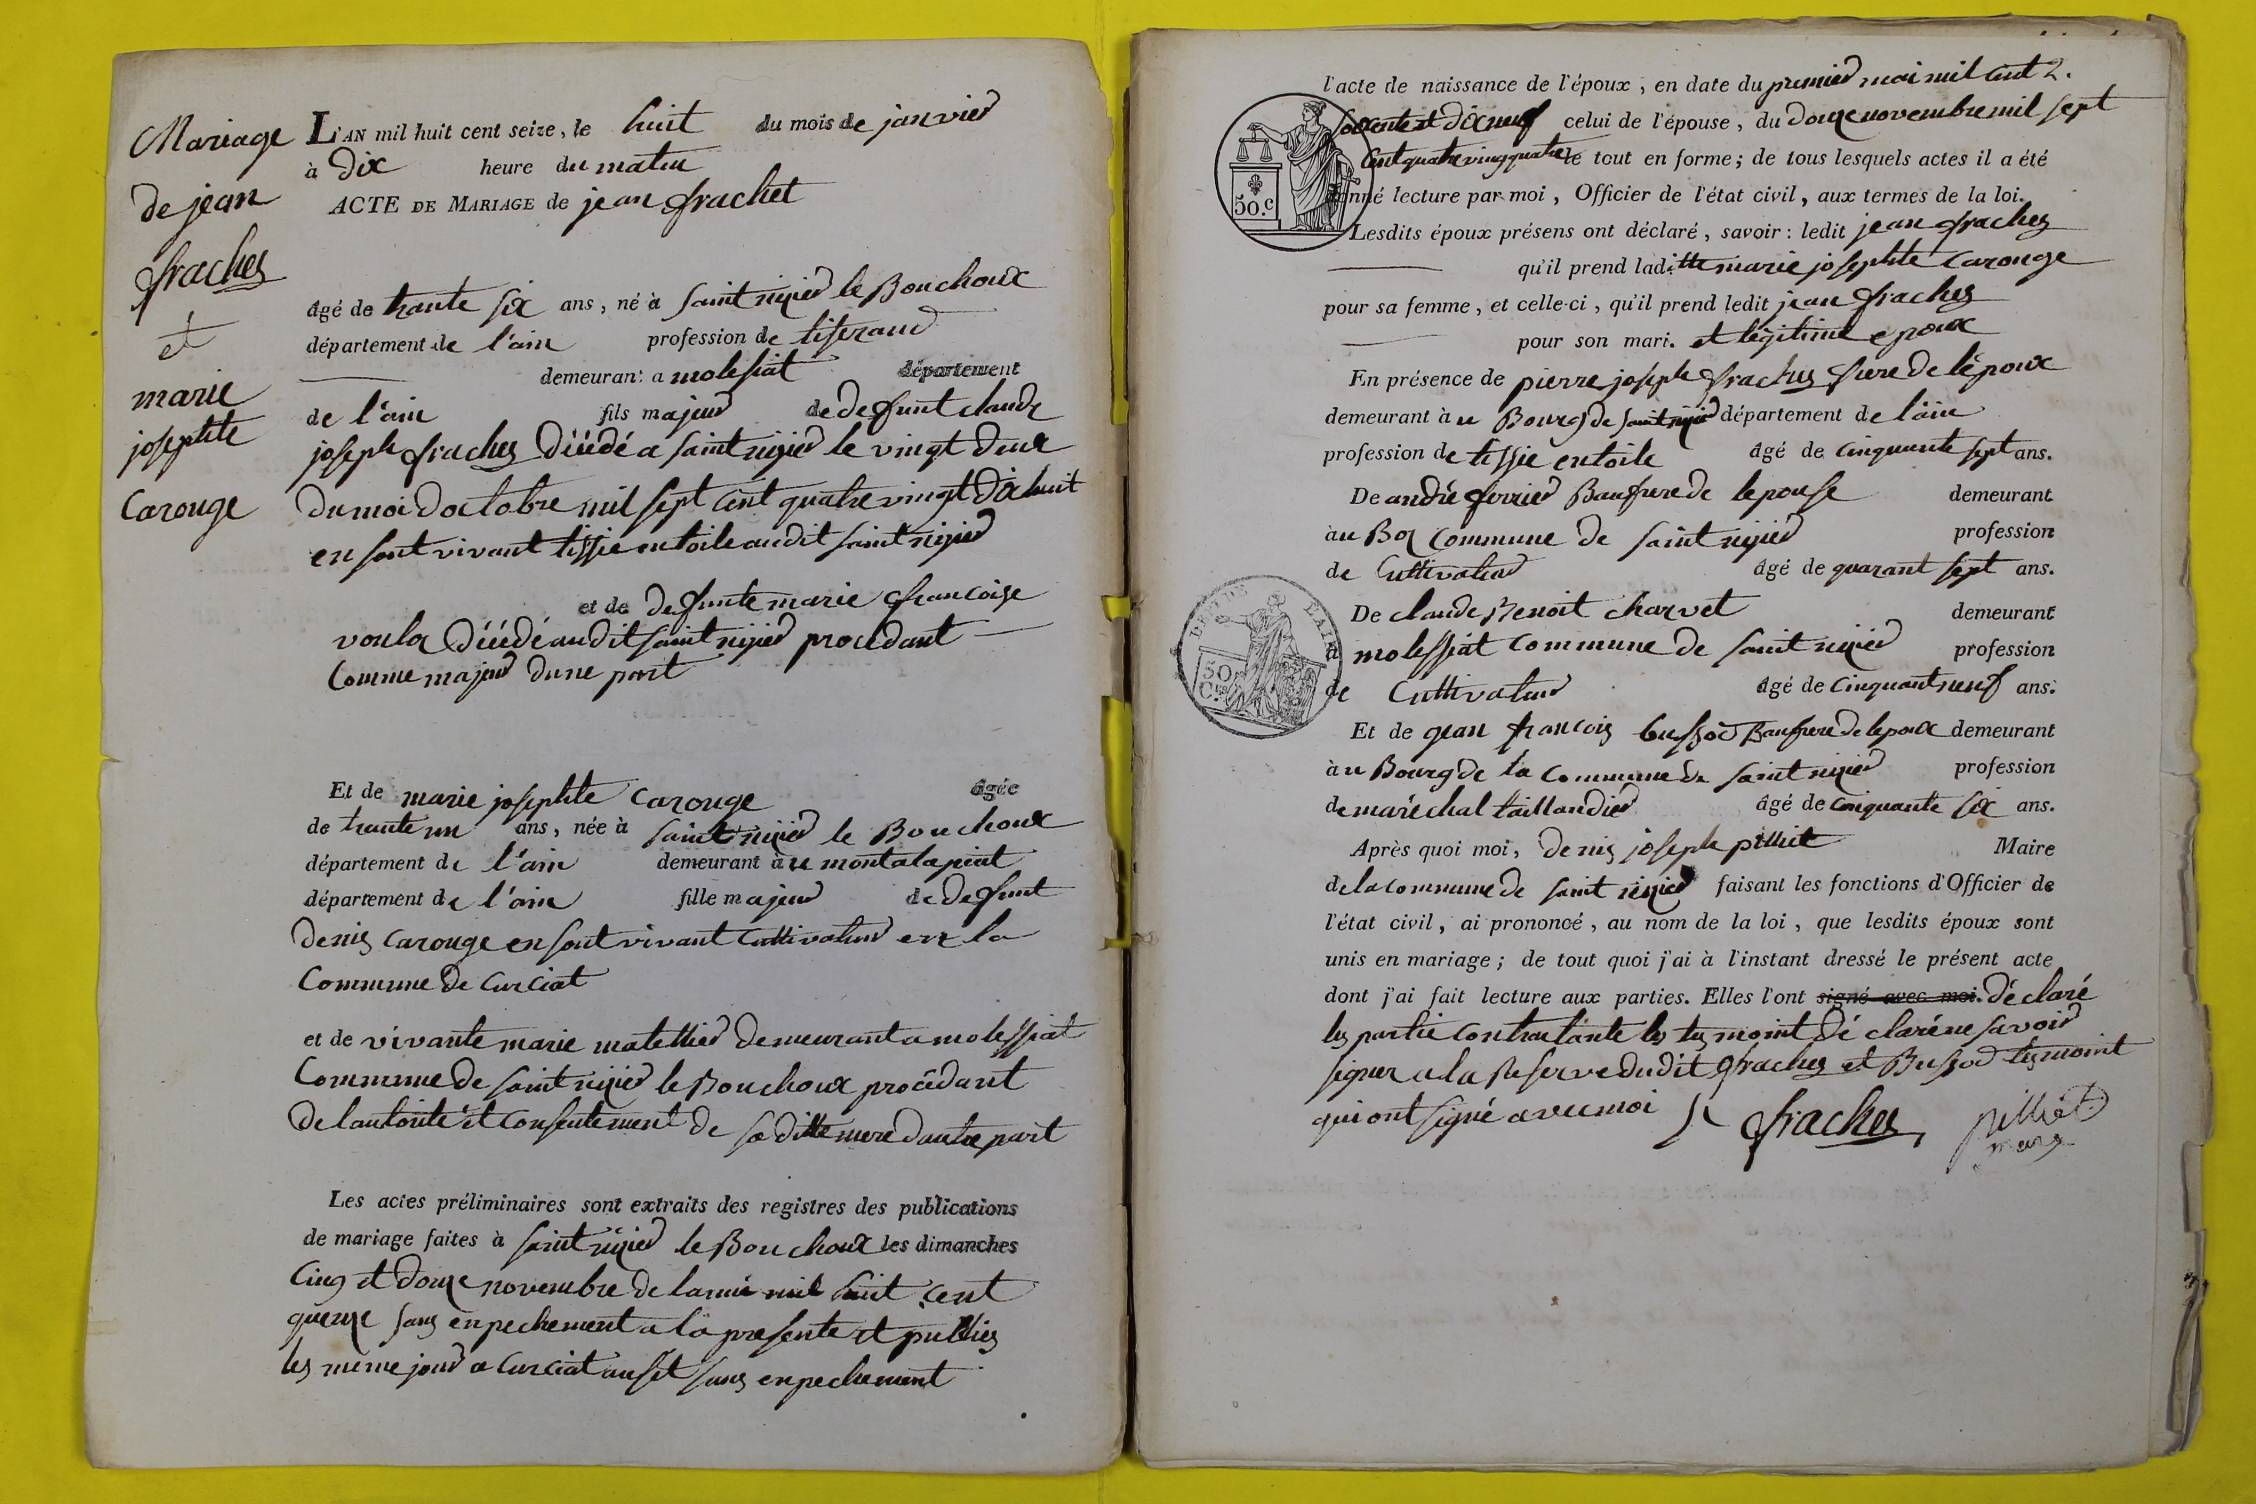 Mariage
de jean
frachez
et
marie
josephte
Carouge
L'AN mil huit cent seize, le huit du mois de janvier
à dix heure du matin
ACTE DE MARIAGE de jean frachet
âgé de trante six ans, né à saint nizier le Bouchoux
département de l'ain profession de tiserand
demeurant a molesiat département
de l'ain fils majeur de defunt claude
joseph frachez décédé a saint nizier le vingt deux
du moi doctobre mil sept cent quatre vingt dixhuit
en sont vivant tissie en toile audit saint nizier
et de defunte marie francoise
décédé audit saint nizier procedant
Comme majeur dune part
Et de marie josephte Carouge âgée
de trante un ans, née à saint nizier le Bouchoux
département de l'ain demeurant à
département de l'ain fille majeur de defunt
denis Carouge en sont vivant Cultivateur en la
Commune de Curciat
et de vivante marie demeurant a molessiat
Commune de saint nizier le Bouchoux procédant
de lautorité et Consentement de sa ditte mere dautre part
Les actes préliminaires sont extraits des registres des publications
de mariage faites à saint nizier le Bouchoux les dimanches
Cinq et douze novembre de lannée mil huit cent
quenze sans enpechement a la presente et publiez
les meme jour a Curciat sans enpechement
l'acte de naissance de l'époux, en date du premier mai mil cent 2.
soixante et dixneuf celui de l'épouse, du douze novembre mil sept
Cent quatre vingt quatre le tout en forme; de tous lesquels actes il a été
donné lecture par moi, Officier de l'état civil, aux termes de la loi.
Lesdits époux présens ont déclaré, savoir: ledit jean frachez
qu'il prend laditte marie josephte Carouge
pour sa femme, et celle-ci, qu'il prend ledit jean frachez
pour son mari. et légitime epoux
En présence de pierre joseph frachez frere de lépoux
demeurant à u Bourg de saint nizier département de l'ain
profession de tissie en toile âgé de cinquante sept ans.
De andré ferrier Baufrere de lepouse demeurant
à u Commune de saint nizier profession
de Cultivateur âgé de quarant sept ans.
De claude Benoit charvet demeurant
à molessiat Commune de saint nizier profession
de Cultivateur âgé de Cinquant neuf ans.
Et de jean francois bussod Baufrere de lepoux demeurant
à u Bourg de la Commune de saint nizier profession
de maréchal taillandier âgé de cinquante six ans.
Après quoi moi, denis joseph pilliet Maire
de la commune de saint nizier faisant les fonctions d'Officier de
l'état civil, ai prononcé, au nom de la loi, que lesdits époux sont
unis en mariage; de tout quoi j'ai à l'instant dressé le présent acte
dont j'ai fait lecture aux parties. Elles l'ont signé avec moi. déclaré
les partie Contractante les tesmoint dé claré ne savoir
signer a la Reserve dudit frachez et Bussod tesmoint
qui ont signé avec moi frachez pilliet
maire
50.c
50